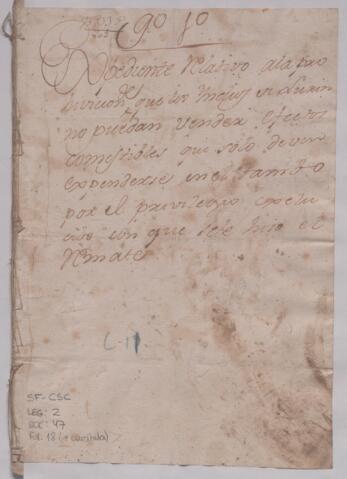 9.o 1o
Expediente relativo ala pro
ivicion que los Indios de Lurin
no puedan vender efectos
comestibles que solo deven
expenderse en el tambo
por el privilegio exclu
civo con que sele hiso el
Remate
C-11
SF-CSC
LEG: 2
DOC: 47
Fol: 18 (+ carátula)